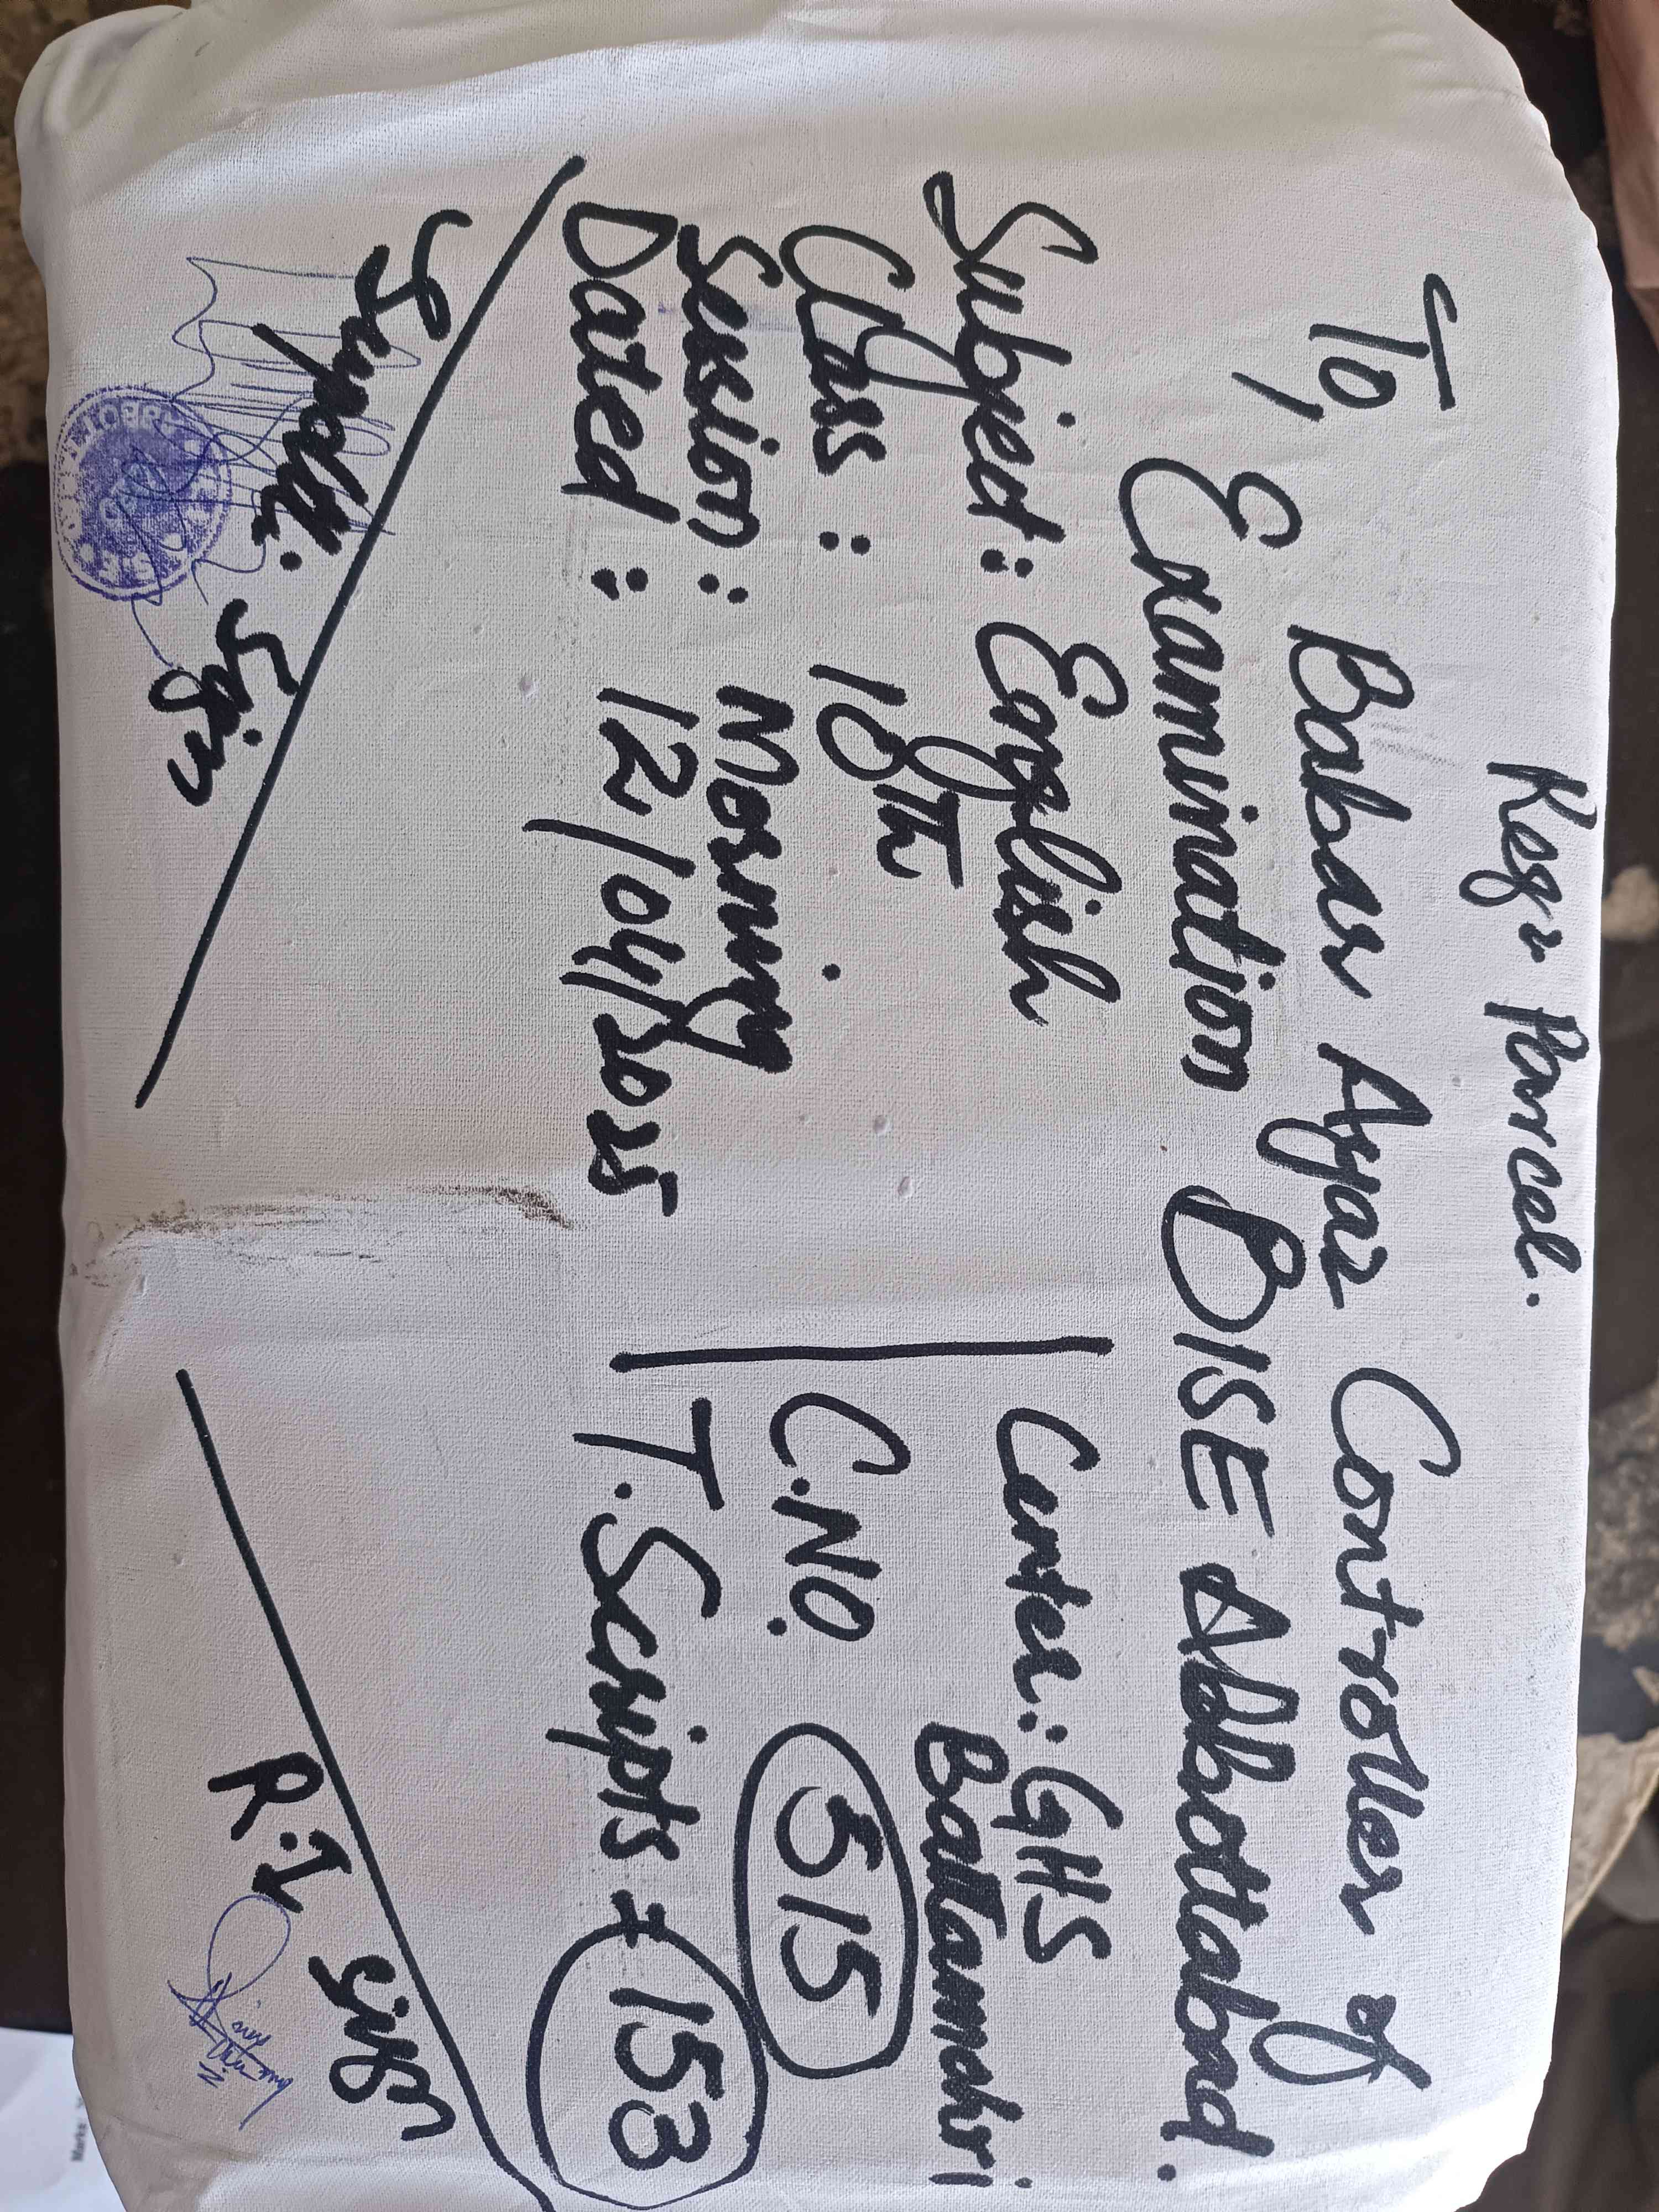 Regr Parcel.
To,
Babar Ayaz Controller of
Examination BISE Abbottabad.
Subject: English
Class : 10th
Session : Morning
Dated : 12/04/2025
Center: GHS
Battamohri
C.NO. 515
T. Scripts = 153
Supdt: Sign
R.I sign